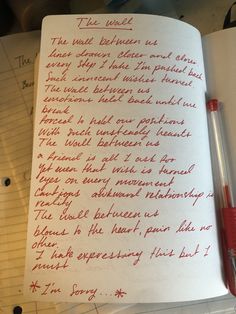 The Wall
The Wall between us
lines drawn closer and closer
every step I take I'm pushed back
Such innocent wishes turned
The Wall between us
emotions held back until we
break
forced to hold our positions
With such unsteady hearts
The Wall between us
a friend is all I ask for
Yet even that wish is turned
eyes on every movement
Cautious awkward relationship is
reality
The Wall between us
blows to the heart, pain like no
other.
I hate expressing this but I
must
*I'm Sorry...*